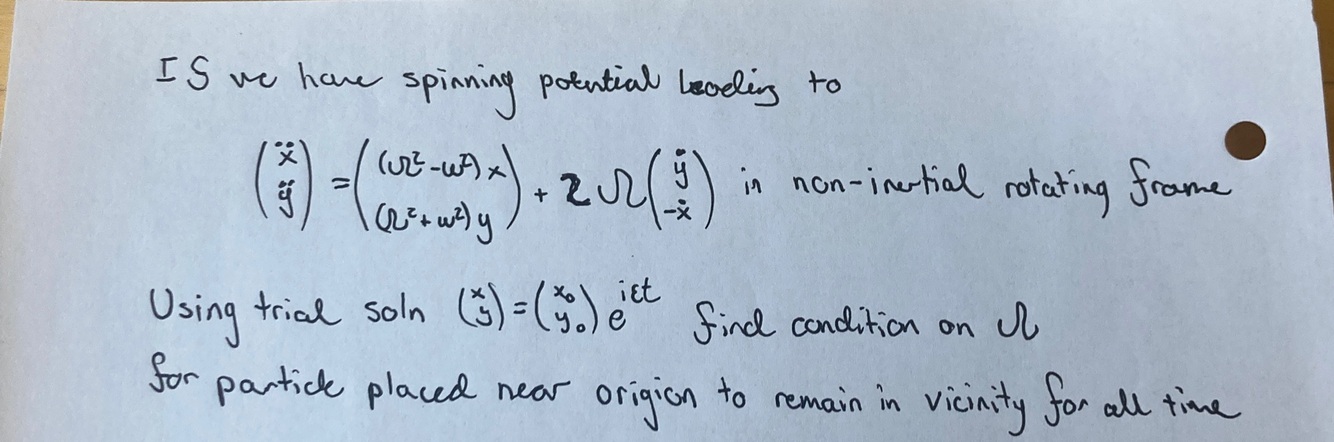 IS we have spinning potential leading to
(ẍ ÿ) = ((Ω²-ω²)x (Ω²+ω²)y) + 2Ω(ẏ -ẋ) in non-inertial rotating frame
Using trial soln (x y) = (x₀ y₀) e^iεt find condition on Ω
for particle placed near origion to remain in vicinity for all time